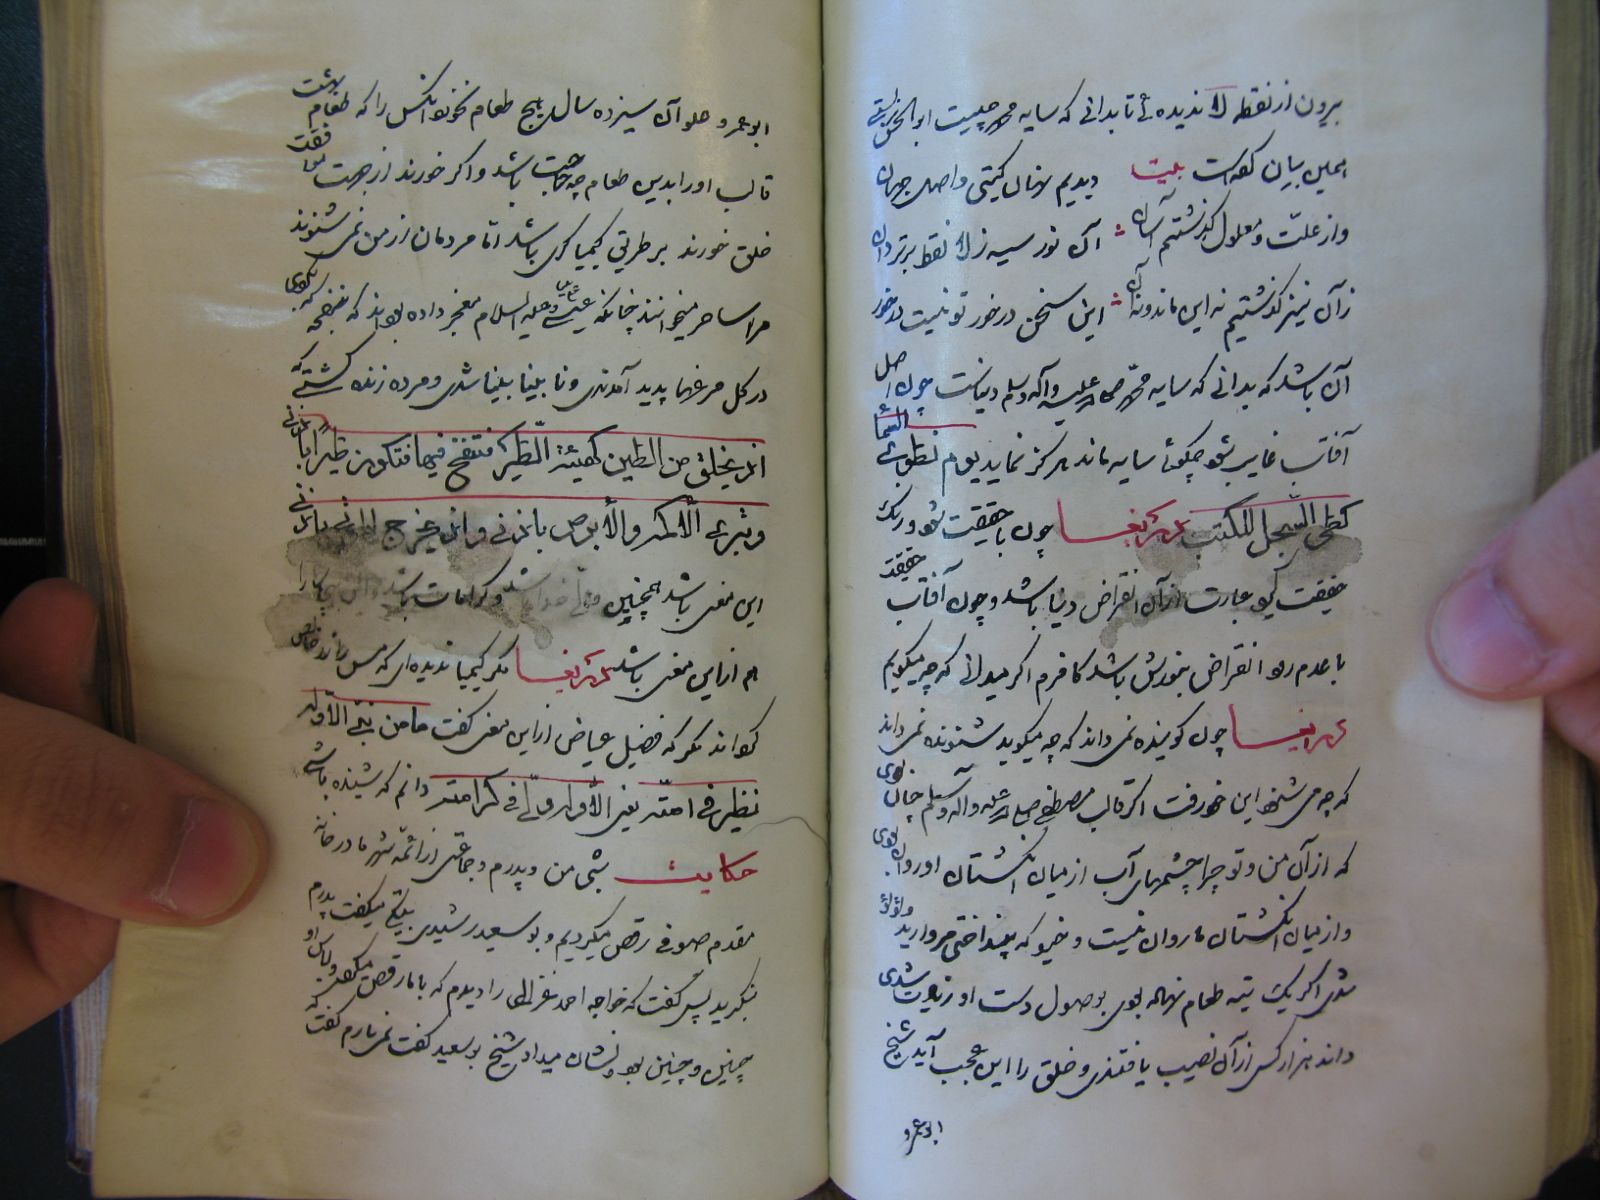 بیرون از نقطه لا ندیده تا بدانی که سایه محمد چیست ابوالحسن بستی
همین بیان کرده است بیت دیدیم نهان گیتی و اصل جهان
وز علت و معلول گذشتیم آسان آن نور سیه ز لا نقط برتر دان
زآن نیز گذشتیم نه این ماند و نه آن این سخن در خور تو نیست در خور
آن باشد که بدانی که سایه محمد صلی الله علیه و آله وسلم دنیاست چون اصل
آفتاب غایب شود چگونه سایه ماند هرگز نماید یوم نطوی السماء
کطی السجل للکتب عزیزا چون با حقیقت شود و رنگ
حقیقت گیرد عبارت از آن انقراض دنیا باشد و چون آفتاب حقیقت
با عدم رود انقراض بنورش باشد کافرم اگر میدانی که چه میگویم
عزیزا چون گوینده نمی داند که چه میگوید شنونده نمی داند
که چه می شنود این خود رفت اگر قالب مصطفی صلی الله علیه وآله وسلم چنان بودی
که از آن من و تو چرا چشمهای آب از میان انگشتان او روان بودی
و از میان انگشتان ما روان نیست و خیو که بینداختی مروارید و لؤلؤ
شدی اگر یک تیه طعام نهاده بودی بوصول دست او زیادت شدی
و اند هزار کس از آن نصیب یافتندی و خلق را این عجب آید شیخ
ابو عمرو
ابو عمرو علوان سیزده سال هیچ طعام نخورد آنکس را که طعام بهشت
قالب او را بدین طعام چه حاجت باشد و اگر خورند از جهت موافقت
خلق خورند بر طریق کیمیاگری باشد اما مردمان از من نمی شنوند
مرا ساحر میخوانند چنانکه عیسی علیه السلام معجز داده بودند که بنفخه که بکردی
در گل مرغها پدید آمدندی و نابینا بینا شدی و مرده زنده گشتی که
اذ یخلق من الطین کهیئة الطیر فتنفخ فیها فتکون طیرا باذنی
و تبرئ الأکمه والأبرص باذنی و اذ تخرج الموتی باذنی
این معنی باشد همچنین ولی خدا و کرامات باشد
هم از این معنی باشد عزیزا مگر کیمیا ندیده ای که مس را زر خالص
گرداند مگر که فضیل عیاض از این معنی گفت ما من نبی الا وله
نظیر فی امته یعنی الا وله ولی فی کرامته دانم که شنیده باشی
حکایت شبی من و پدرم و جماعتی از ائمه شهر ما در خانه
مقدم صوفی رقص میکردیم و بو سعید ترشیزی بیتکی میگفت پدرم
بنگرید پس گفت که خواجه احمد غزالی را دیدم که با ما رقص میکرد و لباس او
چنین و چنین بود و نشان میداد شیخ بو سعید گفت نمی یارم گفت که